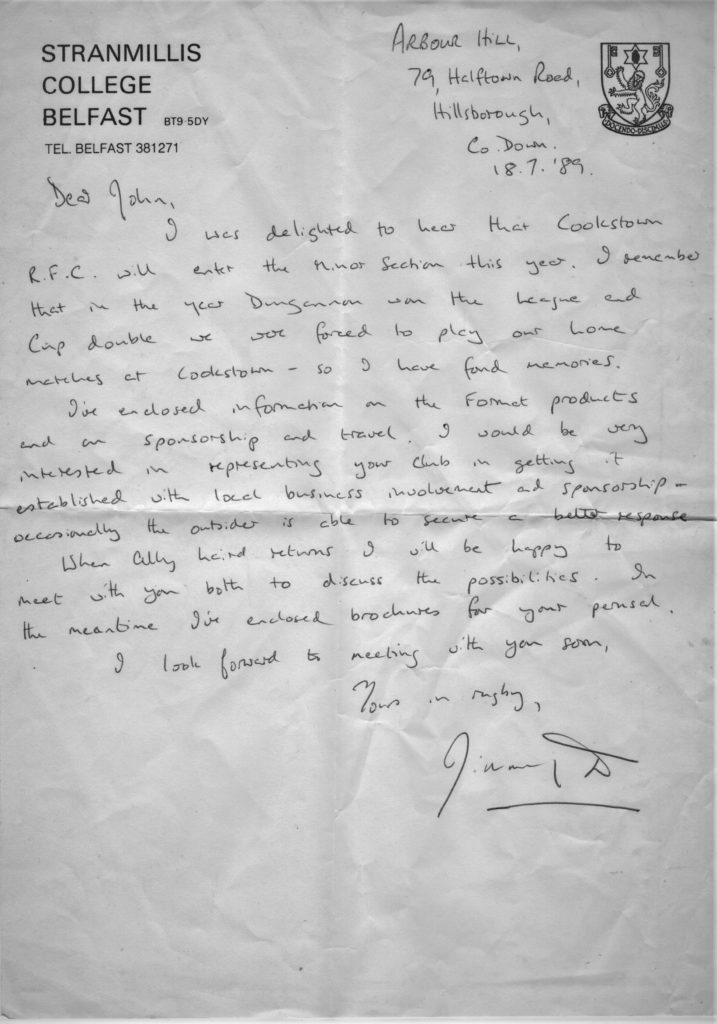 STRANMILLIS
COLLEGE
BELFAST BT9 5DY
TEL. BELFAST 381271
ARBOUR HILL,
79, Halftown Road,
Hillsborough,
Co. Down.
18.7.'89.
DOCENDO DISCIMUS
Dear John,
I was delighted to hear that Cookstown
R.F.C. will enter the Minor Section this year. I remember
that in the year Dungannon won the League and
Cup double we were forced to play our home
matches at Cookstown - so I have fond memories.
I've enclosed information on the Format products
and on sponsorship and travel. I would be very
interested in representing your club in getting it
established with local business involvement and sponsorship -
occasionally the outsider is able to secure a better response
When Ally Laird returns I will be happy to
meet with you both to discuss the possibilities. In
the meantime I've enclosed brochures for your perusal.
I look forward to meeting with you soon,
Yours in rugby,
Jimmy D